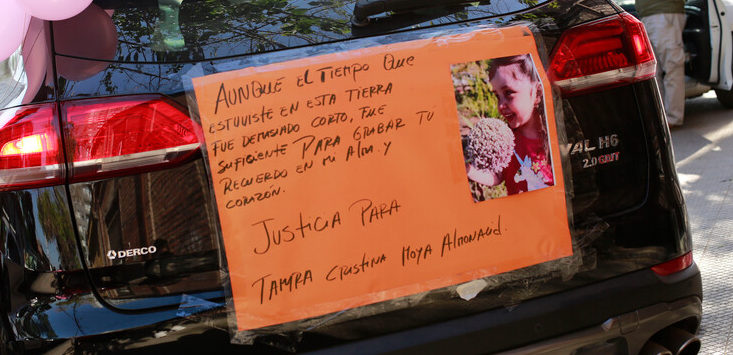 AUNQUE EL TIEMPO QUE
ESTUVISTE EN ESTA TIERRA
FUE DEMASIADO CORTO, FUE
SUFICIENTE PARA GRABAR TU
RECUERDO EN MI ALMA Y
CORAZÓN.
JUSTICIA PARA
TAMARA CRISTINA MOYA ALMONACID.
VAL H6
2.0 GDIT
DERCO